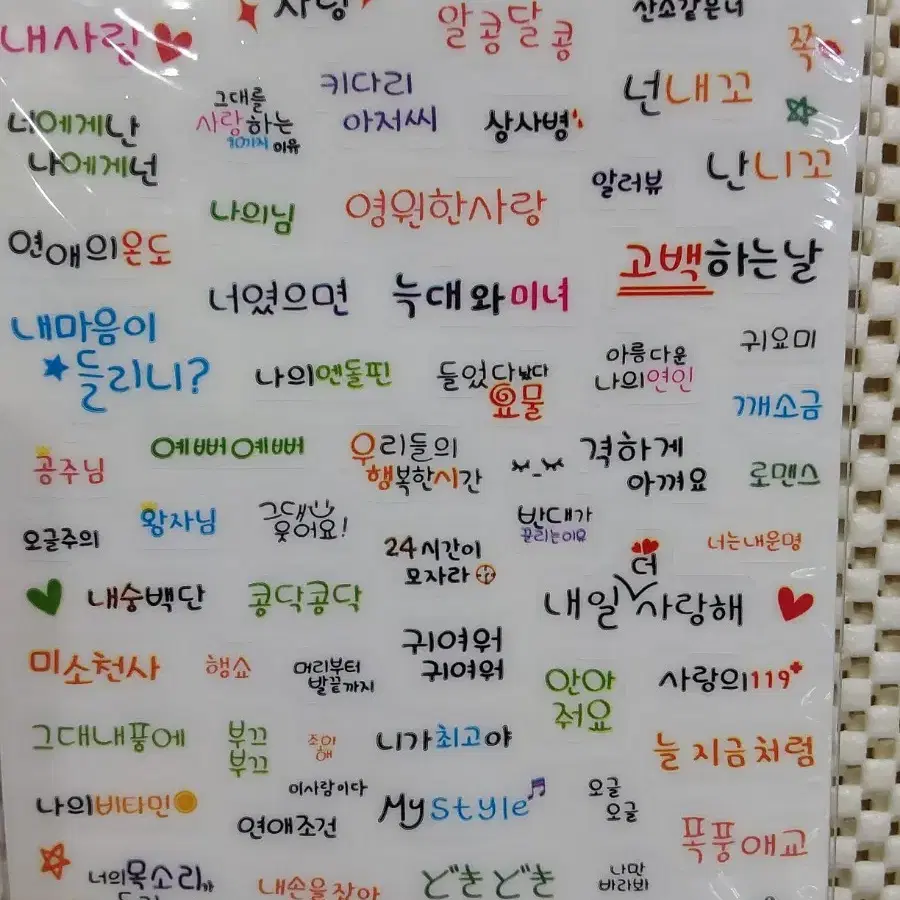 사랑
산소같은너
내사림
알콩달콩
쪽
키다리
아저씨
그대를
사랑하는
10가지 이유
상사병
넌내꼬
난니꼬
너에게난
나에게넌
나의님
영원한사랑
알러뷰
연애의온도
너였으면
늑대와미녀
고백하는날
내마음이
들리니?
나의엔돌핀
들었다놨다
요물
아름다운
나의연인
귀요미
깨소금
공주님
예뻐예뻐
우리들의
행복한시간
격하게
아껴요
로맨스
오글주의
왕자님
그대
웃어요!
24시간이
모자라
반대가
끌리는이유
너는내운명
내숭백단
콩닥콩닥
내일 더 사랑해
미소천사
행쇼
머리부터
발끝까지
귀여워
귀여워
안아
줘요
사랑의119
그대내품에
부끄
부끄
조아
해
니가최고야
늘 지금처럼
나의비타민
이사람이다
연애조건
My style
오글
오글
폭풍애교
너의목소리가
내손을잡아
どきどき
나만
바라봐